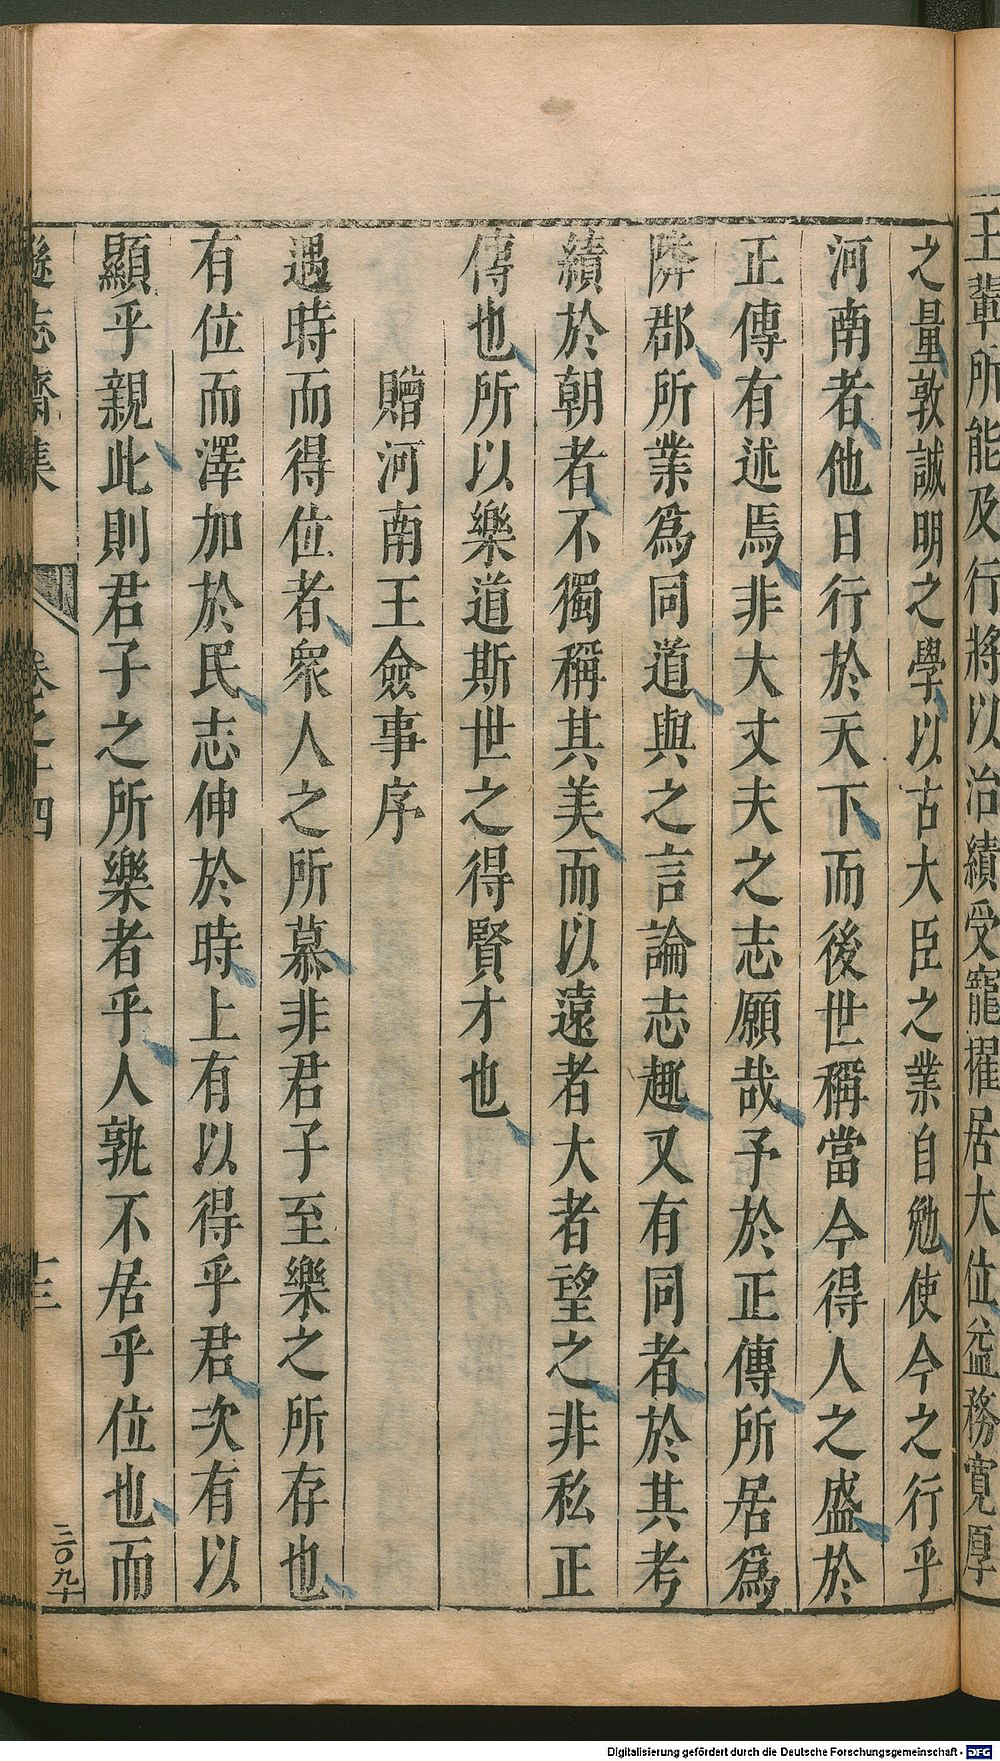 王輩所能及行將以治績受寵擢居大位益務寬厚
之量敦誠明之學以古大臣之業自勉使今之行乎
河南者他日行於天下而後世稱當今得人之盛於
正傳有述焉非大丈夫之志願哉予於正傳所居爲
隣郡所業爲同道與之言論志趣又有同者於其考
績於朝者不獨稱其美而以遠者大者望之非私正
傳也所以樂道斯世之得賢才也
贈河南王僉事序
遇時而得位者衆人之所慕非君子至樂之所存也
有位而澤加於民志伸於時上有以得乎君次有以
顯乎親此則君子之所樂者乎人孰不居乎位也而
遜志齋集 卷之十四 十三
二〇九十
Digitalisierung gefördert durch die Deutsche Forschungsgemeinschaft - DFG